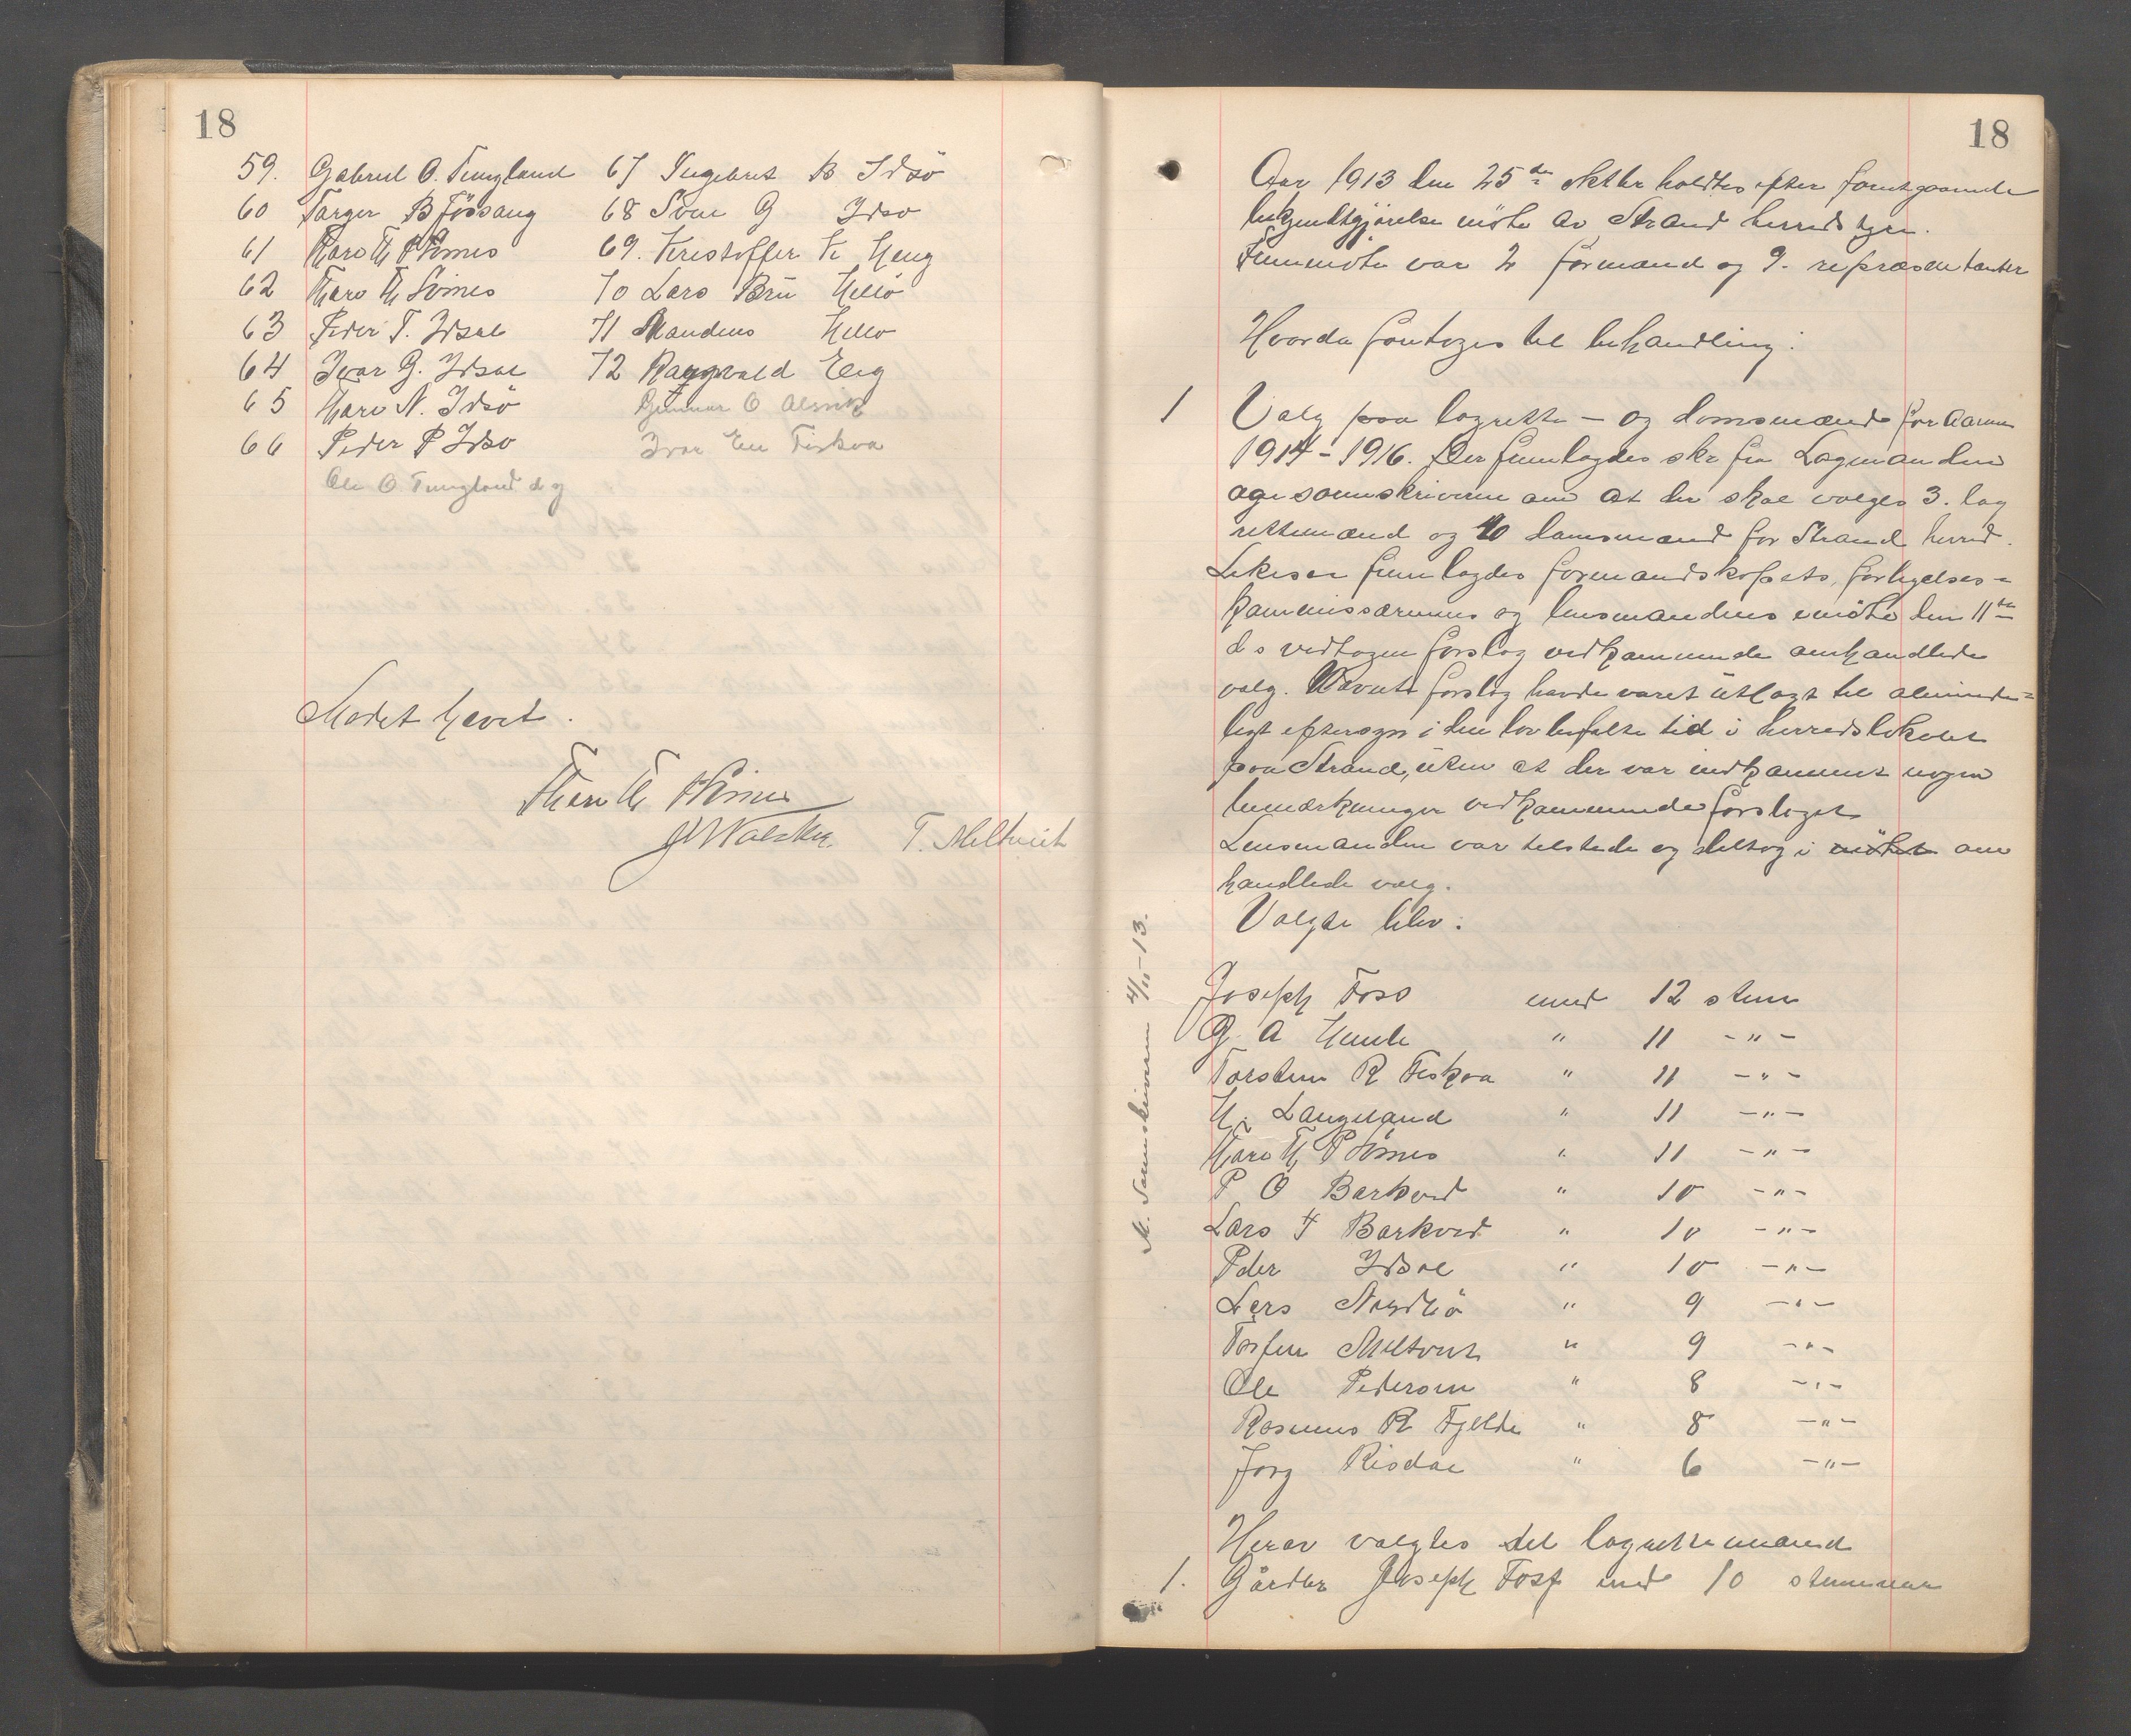 18
59. Gabriel O. Tungland
60 Targer B Fjössang
61 Hars Th P Sømes
62 Thars Th Sømes
63 Peder T. Idsal
64 Ivar G. Idsal
65 Hans N. Idsö
66 Peder P Idsö
Ole O. Tungland d y
67 Ingebret B Idsö
68 Sven G Idsö
69. Kristoffer K Heng
70 Lars Bru Helle
71 Mandius Helle
72 Rangvald Eig
Gunnar O Alsvik
Ivar En Fiskaa
Mødet hævet.
T. Meltveit
18
Aar 1913 den 25de oktbr holdtes efter forutgaaende
bekjendtgjørelse møte av Strand herredstyre.
Fremmøte var 2 formænd og 9. repræsentanter
Hvorda foretoges til behandling:
1 Valg paa lagrette - og domsmænd for Aarene
1914 - 1916. Der fremlagdes skr fra Lagmanden
og sorenskriveren om at der skal vælges 3. lag
rettemænd og 10 domsmænd for Strand herred.
Likesaa fremlagdes formandskapets, forligelses=
kommissærernes og lensmandens i møte den 11te
ds vedtagne forslag vedkommende omhandlede
valg. Nævnte forslag havde været utlagt til alminde=
ligt eftersyn i den lovbefalte tid i herredslokalet
paa Strand, uten at der var indkommet nogen
bemærkninger vedkommende forslaget
Lensmanden var tilstede og deltog i møtet om
handlede valg.
Valgte blev:
M. Sorenskriveren 4/11-13.
Joseph Foss med 12 stem
G. A Hemle " 11 -"-
Torsten R Fiskaa " 11 -"-
H. Langeland " 11 -"-
Hars Th P Sømes " 11 -"-
P O Barkved " 10 -"-
Lars T Barkved " 10 -"-
Peder Idsal " 10 -"-
Lars Nordbö " 9 -"-
Torfin Meltveit " 9 -"-
Ole Pedersen " 8 -"-
Rasmus R Fjelde " 8 -"-
Jorg Risdal " 6 -"-
Herav valgtes til lagrettemænd
1. Gårdbr Joseph Foss med 10 stemmer